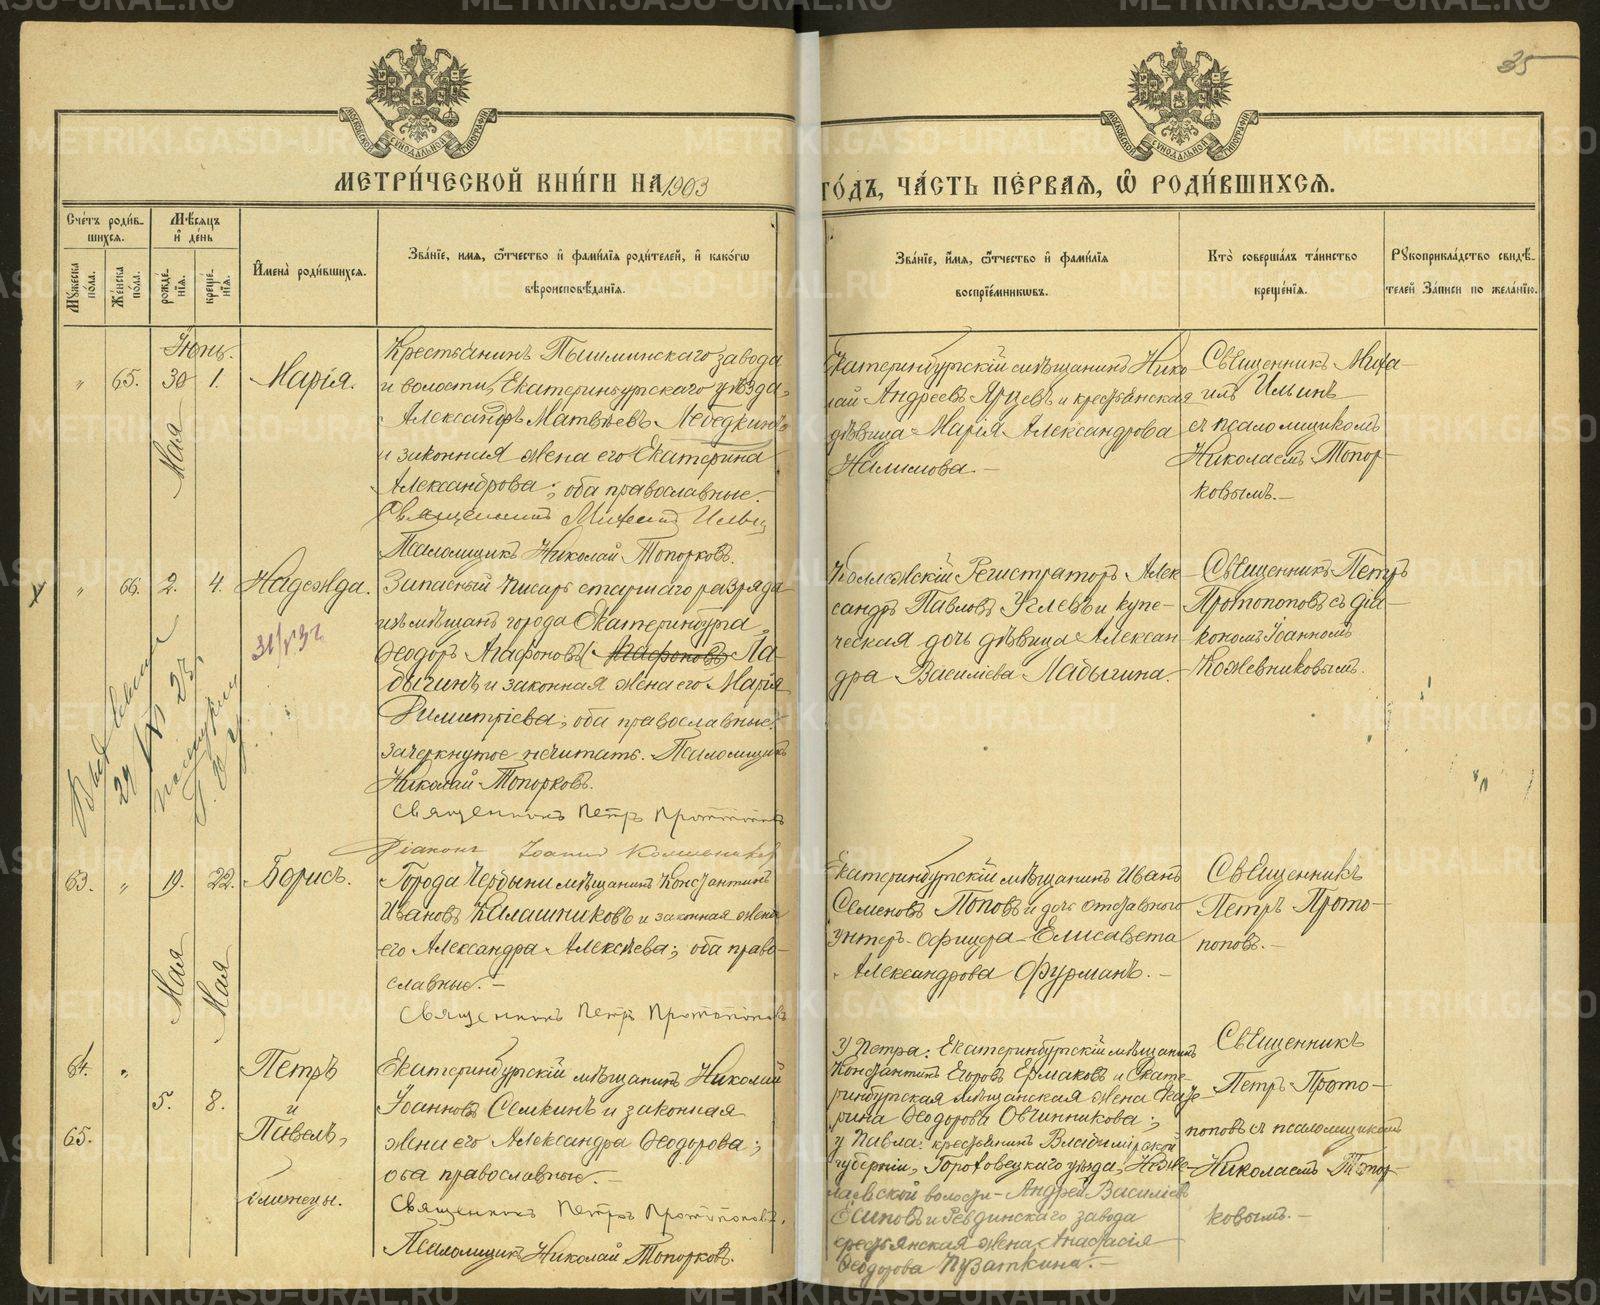 35
МОСКОВСКОЙ СѴНОДАЛЬНОЙ ТИПОГРАФІИ
МОСКОВСКОЙ СѴНОДАЛЬНОЙ ТИПОГРАФІИ
МЕТРИ́ЧЕСКОЙ КНИ́ГИ НА 1903
ГО́ДЪ, ЧА́СТЬ ПЕ́РВАЯ, Ѽ РОДИ́ВШИХСЯ.
Сче́тъ роди́в-
шихся.
Му́жеска по́ла.
Же́нска по́ла.
Мѣ́сяцъ
и҆ де́нь
рожде́нїя.
креще́нїя.
И҆мена̀ роди́вшихся.
Зва́нїе, и́мя, ѿтчество и҆ фами́лїя роди́телей, и҆ како́гѡ
вѣроисповѣ́данїя.
Зва́нїе, и́мя, ѿтчество и҆ фами́лїя
воспрїе́мниковъ.
Кто̀ соверша́лъ та́инство
креще́нїя.
Рꙋкоприкла́дство свидѣ́-
телей За́писи по жела́нїю.
Іюнь.
" 65. 30 1. Марія.
Мая
Крестьянинъ Пышминскаго завода
и волости, Екатеринбургскаго уѣзда,
Александръ Матвѣевъ Лебедкинъ
и законная жена его Екатерина
Александрова; оба православные.
Священникъ Михаилъ Ильинъ
Псаломщикъ Николай Топорковъ.
Екатеринбургскій мѣщанинъ Нико-
лай Андреевъ Ярцевъ и крестьянская
дѣвица Марія Александрова
Налимова.-
Священникъ Миха-
илъ Ильинъ
съ псаломщикомъ
Николаемъ Топор-
ковымъ.-
" 66. 2. 4. Надежда.
Запасный писарь старшаго разряда
изъ мѣщанъ города Екатеринбурга
Ѳеодоръ Агафоновъ (Агафоновъ) Ла-
дыгинъ и законная жена его Марія
Димитріева; оба православные.
зачеркнутое нечитать. Псаломщикъ
Николай Топорковъ.
Священникъ Петръ Протопоповъ
Діаконъ Іоаннъ Кожевниковъ
Коллежскій Регистраторъ Алек-
сандръ Павловъ Углевъ и купе-
ческая дочь дѣвица Алексан-
дра Васильева Ладыгина.
Священникъ Петръ
Протопоповъ съ діа-
кономъ Іоанномъ
Кожевниковымъ.
63. " 19. 22. Борисъ.
Мая
Мая
Города Чердыни мѣщанинъ Константинъ
Ивановъ Калашниковъ и законная жена
его Александра Алексѣева; оба право-
славные.-
Священникъ Петръ Протопоповъ
Екатеринбургскій мѣщанинъ Иванъ
Семеновъ Поповъ и дочь отставнаго
унтеръ-офицера Елисавета
Александрова Фурманъ.-
Священникъ
Петръ Прото-
поповъ.-
64. "
5. 8.
65.
Петръ
и
Павелъ,
близнецы.
Екатеринбургскій мѣщанинъ Николай
Іоанновъ Семкинъ и законная
жена его Александра Ѳеодорова;
оба православные.-
Священникъ Петръ Протопоповъ.
Псаломщикъ Николай Топорковъ.
У Петра: Екатеринбургскій мѣщанинъ
Константинъ Егоровъ Ермаковъ и Екате-
ринбургская мѣщанская жена Екате-
рина Ѳеодорова Овчинникова;
у Павла: крестьянинъ Владимірской
губерніи, Гороховецкаго уѣзда,
волости Андрей Васильевъ
Есиповъ и Ревдинскаго завода
крестьянская жена Анастасія
Ѳеодорова Пузаткина.-
Священникъ
Петръ Прото-
поповъ съ псаломщикомъ
Николаемъ Топор-
ковымъ.-